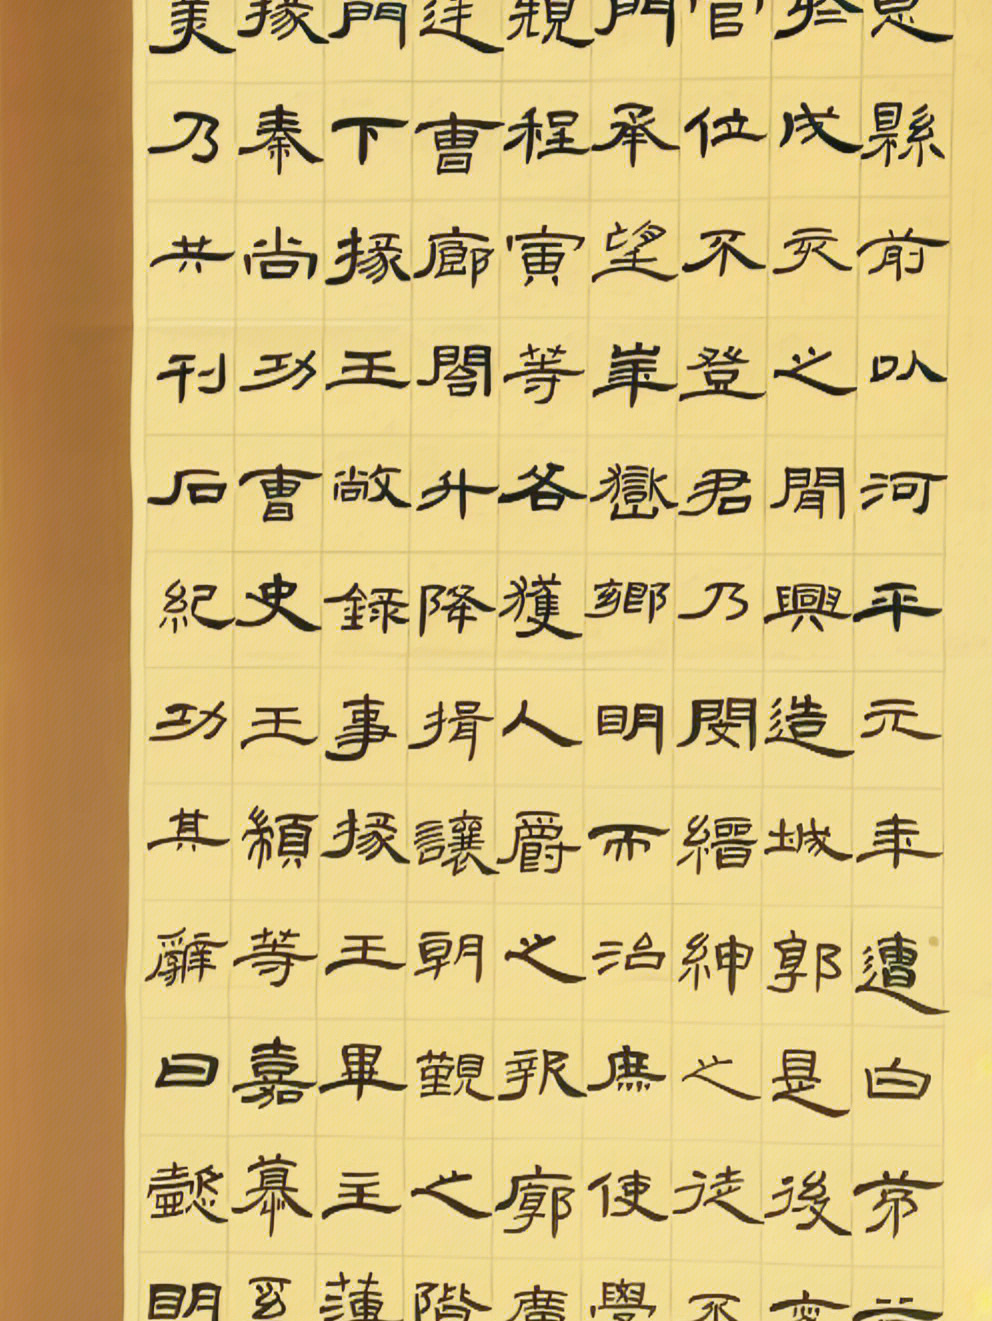 息縣前以河平元年遭白茅
於戌亥之間興造城郭是後
官位不登君乃閔縉紳之徒不
門承望華嶽鄉明而治庶使學
規程寅等各獲人爵之報廓廣
廷曹廊閤升降揖讓朝覲之階
門下掾王敞錄事掾王畢主薄
掾秦尚功曹史王顓等嘉慕奚
美乃共刊石紀功其辭曰懿明